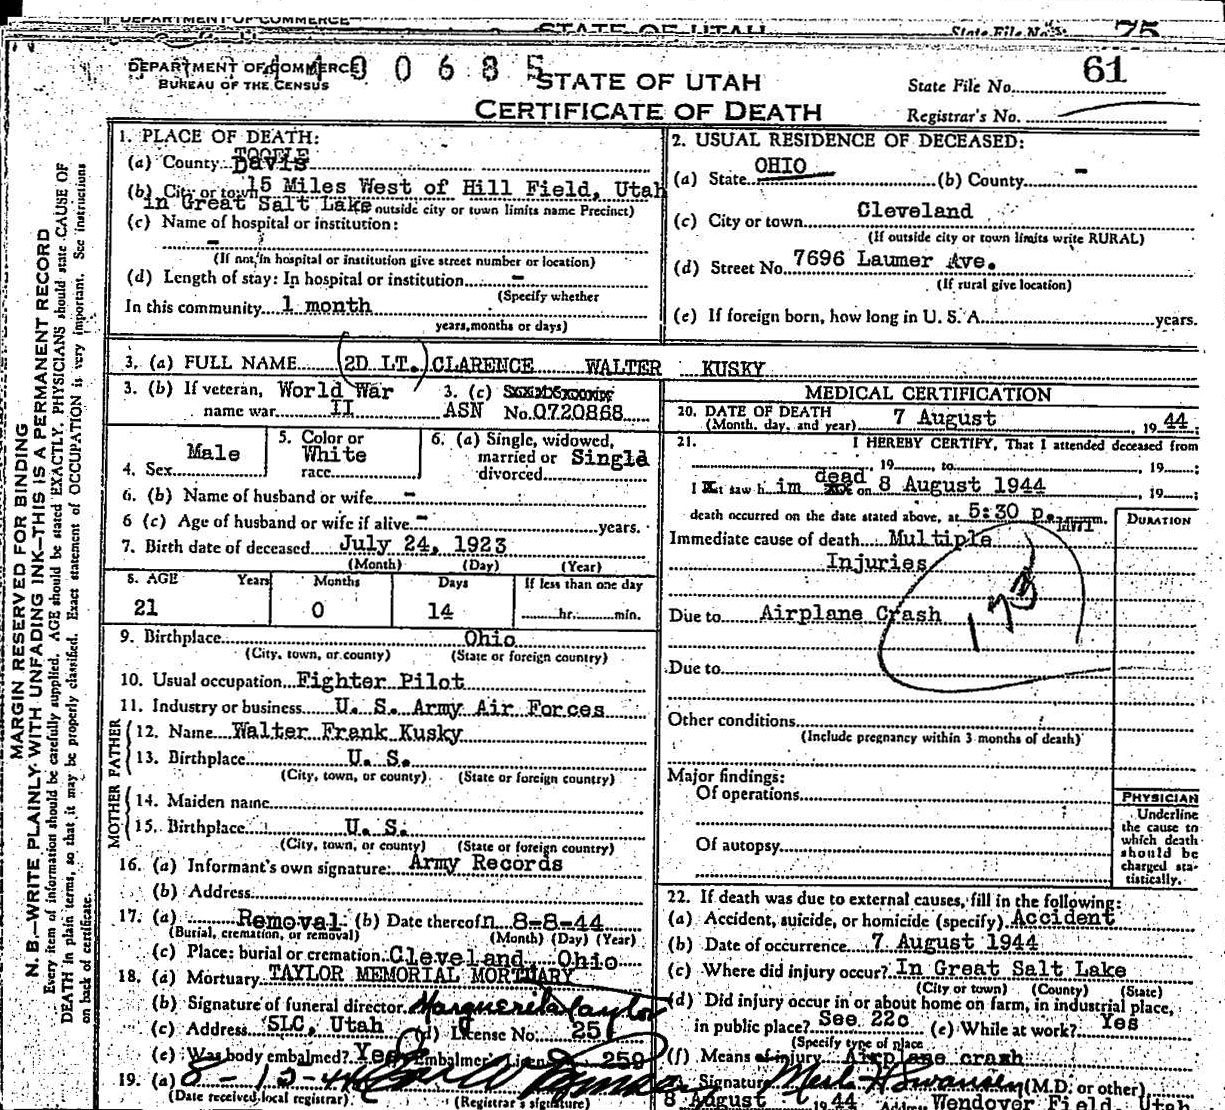 DEPARTMENT OF COMMERCE
STATE OF UTAH
State File No. 75
DEPARTMENT OF COMMERCE
BUREAU OF THE CENSUS
0 0 6 8 5
STATE OF UTAH
CERTIFICATE OF DEATH
State File No. 61
Registrar's No.
MARGIN RESERVED FOR BINDING
N. B.—WRITE PLAINLY WITH UNFADING INK—THIS IS A PERMANENT RECORD
Every item of information should be carefully supplied. AGE should be stated EXACTLY. PHYSICIANS should state CAUSE OF
DEATH in plain terms, so that it may be properly classified. Exact statement of OCCUPATION is very important. See instructions
on back of certificate.
1. PLACE OF DEATH:
TOOELE
(a) County Davis
(b) City or town 15 Miles West of Hill Field, Utah
in Great Salt Lake outside city or town limits name Precinct)
(c) Name of hospital or institution:
-
(If not in hospital or institution give street number or location)
(d) Length of stay: In hospital or institution -
(Specify whether
In this community 1 month
years, months or days)
2. USUAL RESIDENCE OF DECEASED:
(a) State OHIO (b) County -
(c) City or town Cleveland
(If outside city or town limits write RURAL)
(d) Street No. 7696 Laumer Ave.
(If rural give location)
(e) If foreign born, how long in U. S. A. years.
3. (a) FULL NAME (2D LT.) CLARENCE WALTER KUSKY
3. (b) If veteran, World War
name war II
3. (c)
ASN No. 0720868
4. Sex Male
5. Color or
race White
6. (a) Single, widowed,
married or Single
divorced
6. (b) Name of husband or wife -
6 (c) Age of husband or wife if alive - years.
7. Birth date of deceased July 24, 1923
(Month) (Day) (Year)
8. AGE Years Months Days If less than one day
21 0 14 hr. min.
9. Birthplace Ohio
(City, town, or county) (State or foreign country)
10. Usual occupation Fighter Pilot
11. Industry or business U. S. Army Air Forces
FATHER
12. Name Walter Frank Kusky
13. Birthplace U. S.
(City, town, or county) (State or foreign country)
MOTHER
14. Maiden name
15. Birthplace U. S.
(City, town, or county) (State or foreign country)
16. (a) Informant's own signature: Army Records
(b) Address
17. (a) Removal (b) Date thereof 8-8-44
(Burial, cremation, or removal) (Month) (Day) (Year)
(c) Place: burial or cremation Cleveland, Ohio
18. (a) Mortuary TAYLOR MEMORIAL MORTUARY
(b) Signature of funeral director Marguerite Taylor
(c) Address SLC, Utah (d) License No. 251
(e) Was body embalmed? Yes Embalmer's License 259
19. (a) 8-12-44
(Date received local registrar) (Registrar's signature)
MEDICAL CERTIFICATION
20. DATE OF DEATH
(Month, day, and year) 7 August, 19 44;
21. I HEREBY CERTIFY, That I attended deceased from
, 19 , to , 19 ;
dead
I saw h im on 8 August 1944 , 19 ;
death occurred on the date stated above, at 5:30 p. m.
MWT
DURATION
Immediate cause of death Multiple
Injuries
Due to Airplane Crash
173
Due to
Other conditions
(Include pregnancy within 3 months of death)
Major findings:
Of operations
Of autopsy
PHYSICIAN
Underline
the cause to
which death
should be
charged sta-
tistically.
22. If death was due to external causes, fill in the following:
(a) Accident, suicide, or homicide (specify) Accident
(b) Date of occurrence 7 August 1944
(c) Where did injury occur? In Great Salt Lake
(City or town) (County) (State)
(d) Did injury occur in or about home on farm, in industrial place,
in public place? See 22c (e) While at work? Yes
(Specify type of place
(f) Means of injury Airplane crash
Signature Merl H Swansen (M.D. or other)
8 August 19 44 Address Wendover Field, Utah